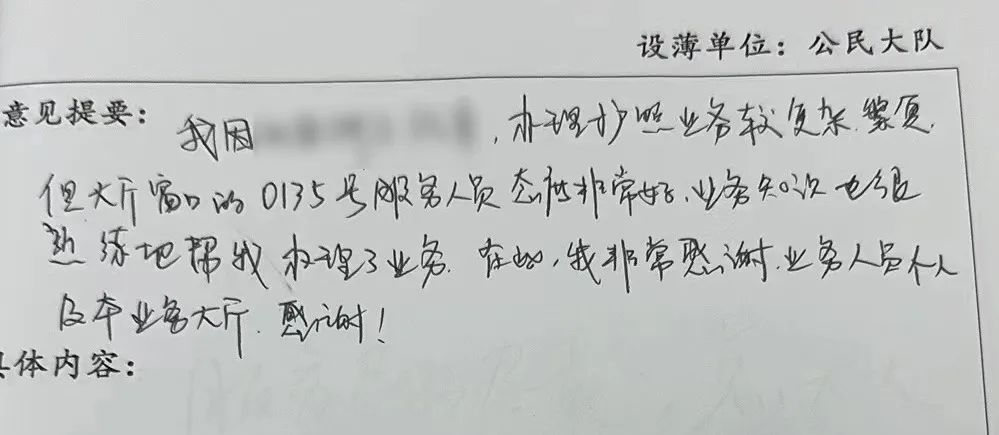 设薄单位：公民大队
意见提要：
我因，办理护照业务较复杂.繁复.
但大厅窗口的0135号服务人员态度非常好.业务知识也很
熟练地帮我办理了业务.在此,我非常感谢.业务人员本人
及本业务大厅.感谢！
具体内容：